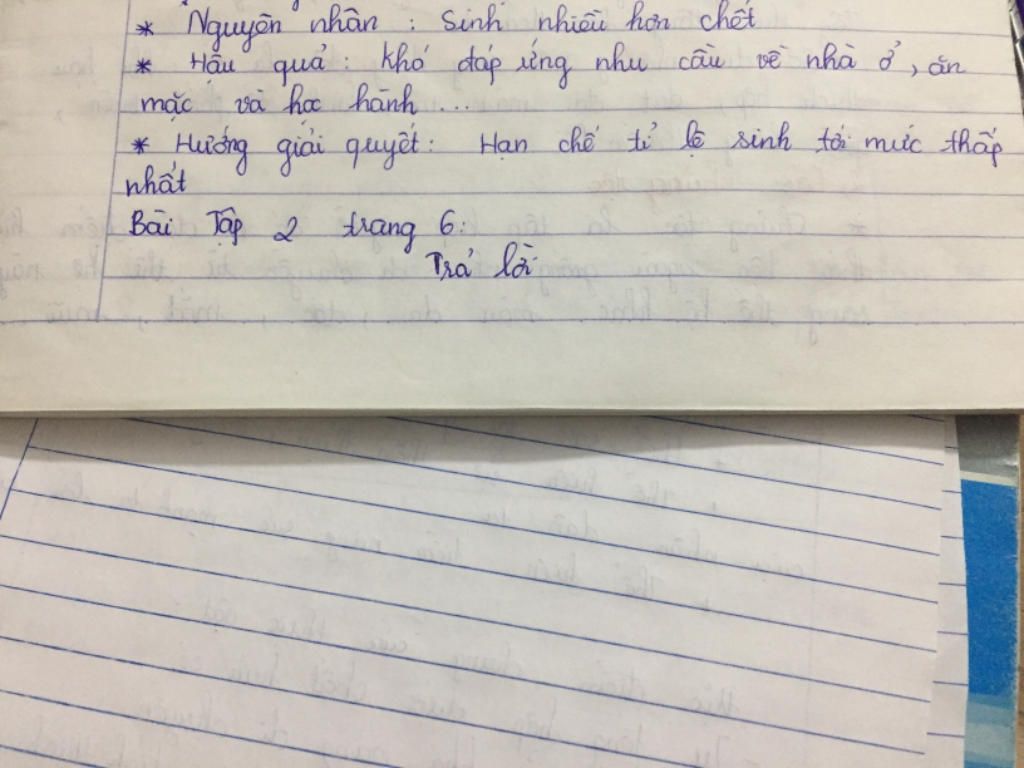 * Nguyên nhân : Sinh nhiều hơn chết
* Hâu quả : khó đáp ứng nhu cầu về nhà ở, ăn
mặc và học hành...
* Hướng giải quyết : Hạn chế tỉ lệ sinh tới mức thấp
nhất
Bài Tập 2 trang 6:
Trả lời